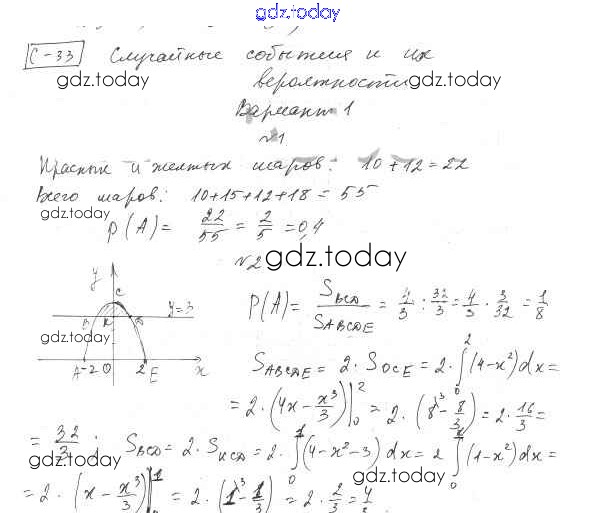 gdz.today
С-33 Случайные события и их
gdz.today
вероятности
gdz.today
Вариант 1
№1
Красных и желтых шаров: 10+12=22
Всего шаров: 10+15+12+18=55
gdz.today
P(A)= 22/55 = 2/5 = 0,4
№2 gdz.today
y
C
y=3
B K D
gdz.today
A -2 O 2 E x
P(A)= S_BCD / S_ABCDE = 4/3 : 32/3 = 4/3 · 3/32 = 1/8
gdz.today
S_ABCDE = 2·S_OCE = 2·∫₀²(4-x²)dx=
=2·(4x - x³/3)|₀² = 2·(8 - 8/3) = 2·16/3 =
gdz.today
= 32/3; S_BCD = 2·S_KCD = 2·∫₀¹(4-x²-3)dx = 2∫₀¹(1-x²)dx=
gdz.today
gdz.today
=2·(x - x³/3)|₀¹ = 2·(1 - 1/3) = 2·2/3 = 4/3.